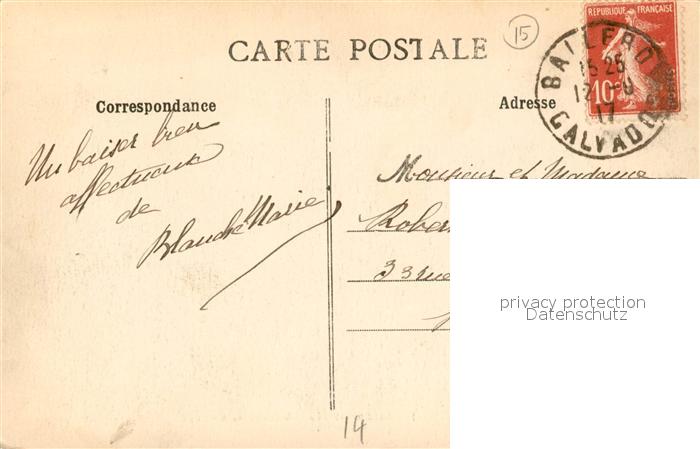 15
CARTE POSTALE
REPUBLIQUE FRANÇAISE
10c
BALLEROY
15 25
12 -8
17
CALVADOS
Correspondance
Adresse
Un baiser bien
affectueux
de
Blanche Marie
Monsieur et Madame
Rober
33 rue
privacy protection
Datenschutz
14